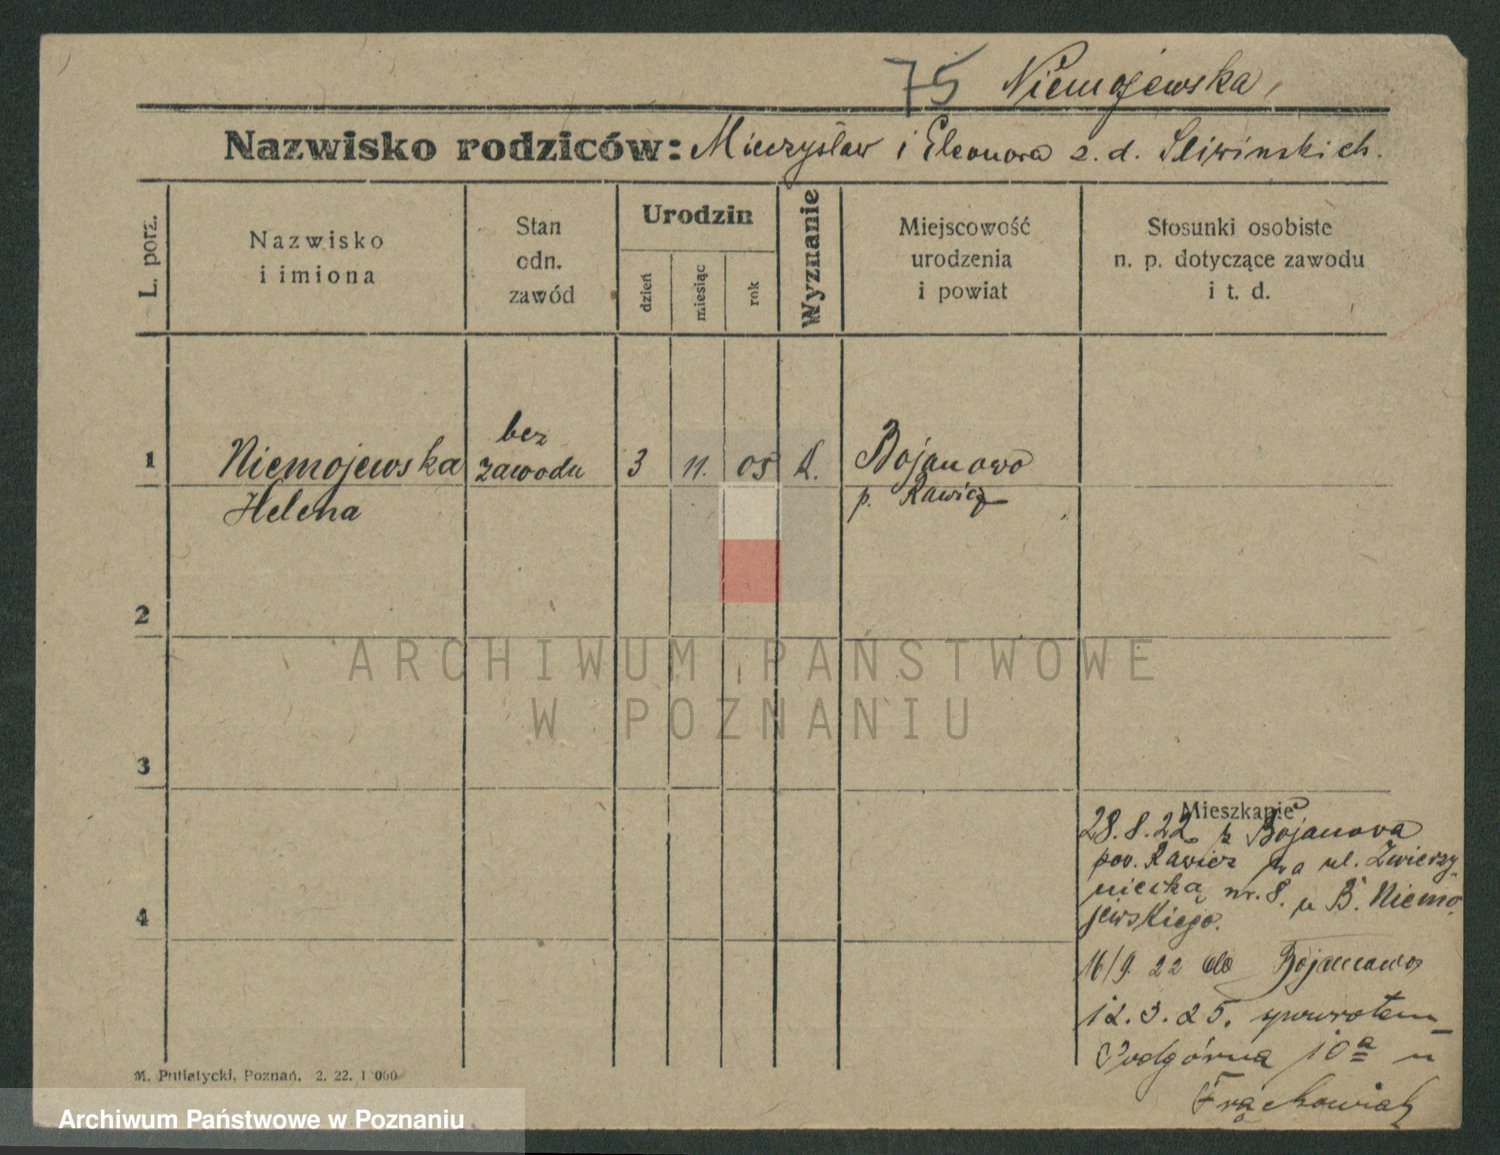 75 Niemojewska
Nazwisko rodziców: Mieczysław i Eleonora z. d. Sliwinskich.
L. porz.
Nazwisko
i imiona
Stan
odn.
zawód
Urodzin
dzień
miesiąc
rok
Wyznanie
Miejscowość
urodzenia
i powiat
Stosunki osobiste
n. p. dotyczące zawodu
i t. d.
bez
1 Niemojewska zawodu 3 11. 05 k. Bojanowo
Helena p. Rawicz
2
ARCHIWUM PAŃSTWOWE
W POZNANIU
3
Mieszkanie
28.8.22 z Bojanova
pov. Rawicz na ul. Zwierzy-
niecką nr. 8. u B. Niemo-
jewskiego.
4
16/9 22 do Bojanowo
12.3.25. spowrotem
Podgórna 10a u
Frąckowiak
M. Putiatycki, Poznań. 2. 22. 1 000
Archiwum Państwowe w Poznaniu